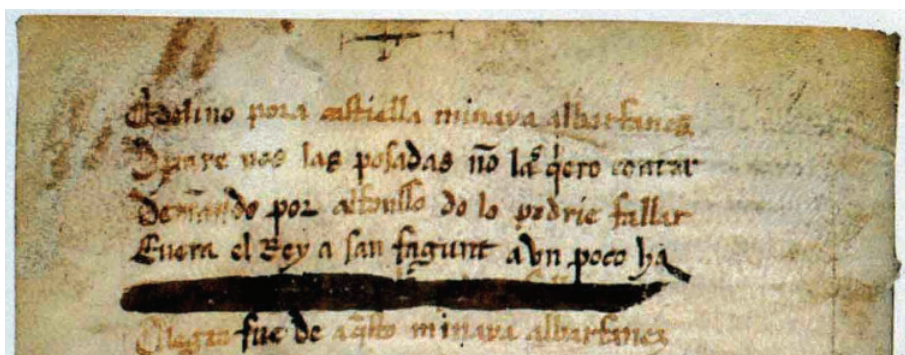 Adelino pora castiella minaya albarfanez
Dexare vos las posadas no las qero contar
Demando por alfonsso do lo podrie fallar
Fuera el Rey a san fagunt avn poco ha
fue de aqsto minaya albarfanez